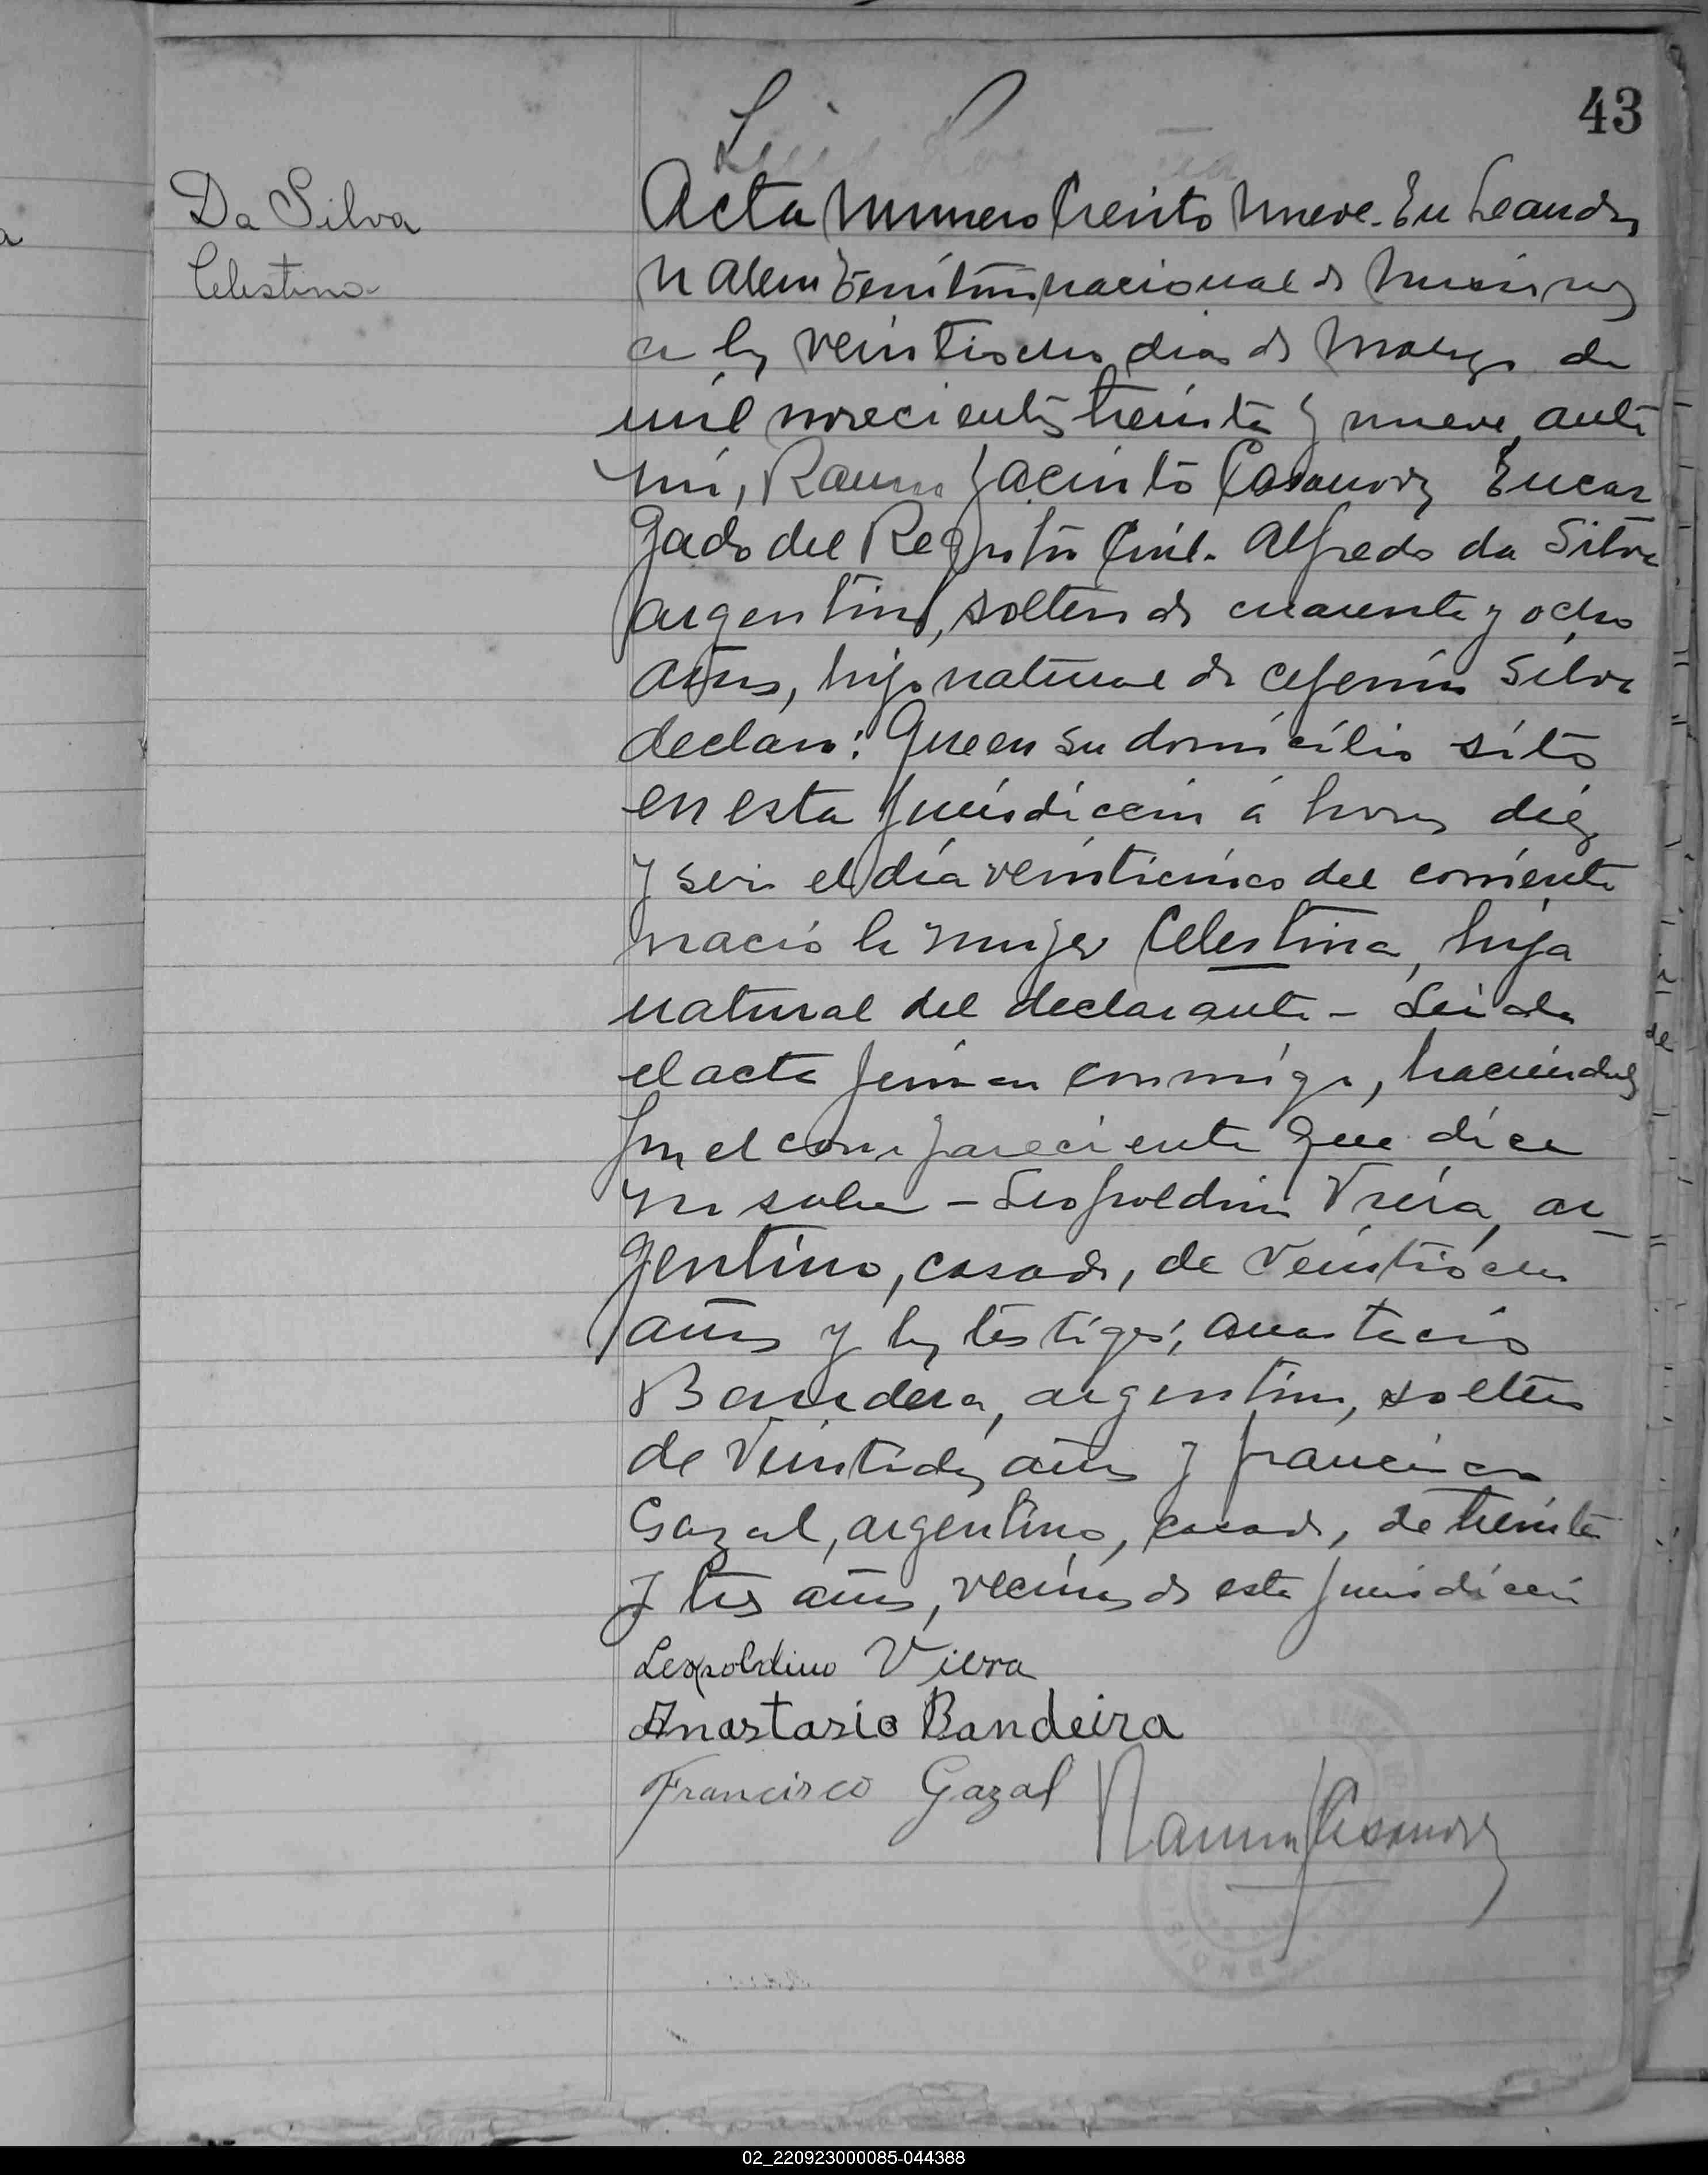 43
Da Silva
Celestina
Acta Numero Ciento Nueve. En Leandro
N Alem Territorio nacional de Misiones
a los veintiocho dias de Marzo de
mil novecientos treinta y nueve, ante
mi, Ramon Jacinto Casanova Encar
gado del Registro Civil. Alfredo da Silva
argentino, soltero de cuarenta y ocho
años, hijo natural de Ceferino Silva
declaro: Que en su domicilio sito
en esta Jurisdiccion á horas diez
y seis el día veinticinco del corriente
nació la mujer Celestina, hija
natural del declarante - Leida
el acta firman conmigo, haciendolo
por el compareciente que dice
no saber - Leopoldino Vieira, ar
gentino, casado, de veintiocho
años y los testigos; Anastacio
Bandera, argentino, soltero
de veintidos años y Francisco
Gazal, argentino, casado, de treinta
y tres años, vecinos de esta Jurisdiccion
Leopoldino Viera
Anastasio Bandeira
Francisco Gazal
Ramon J Casanova
02_220923000085-044388